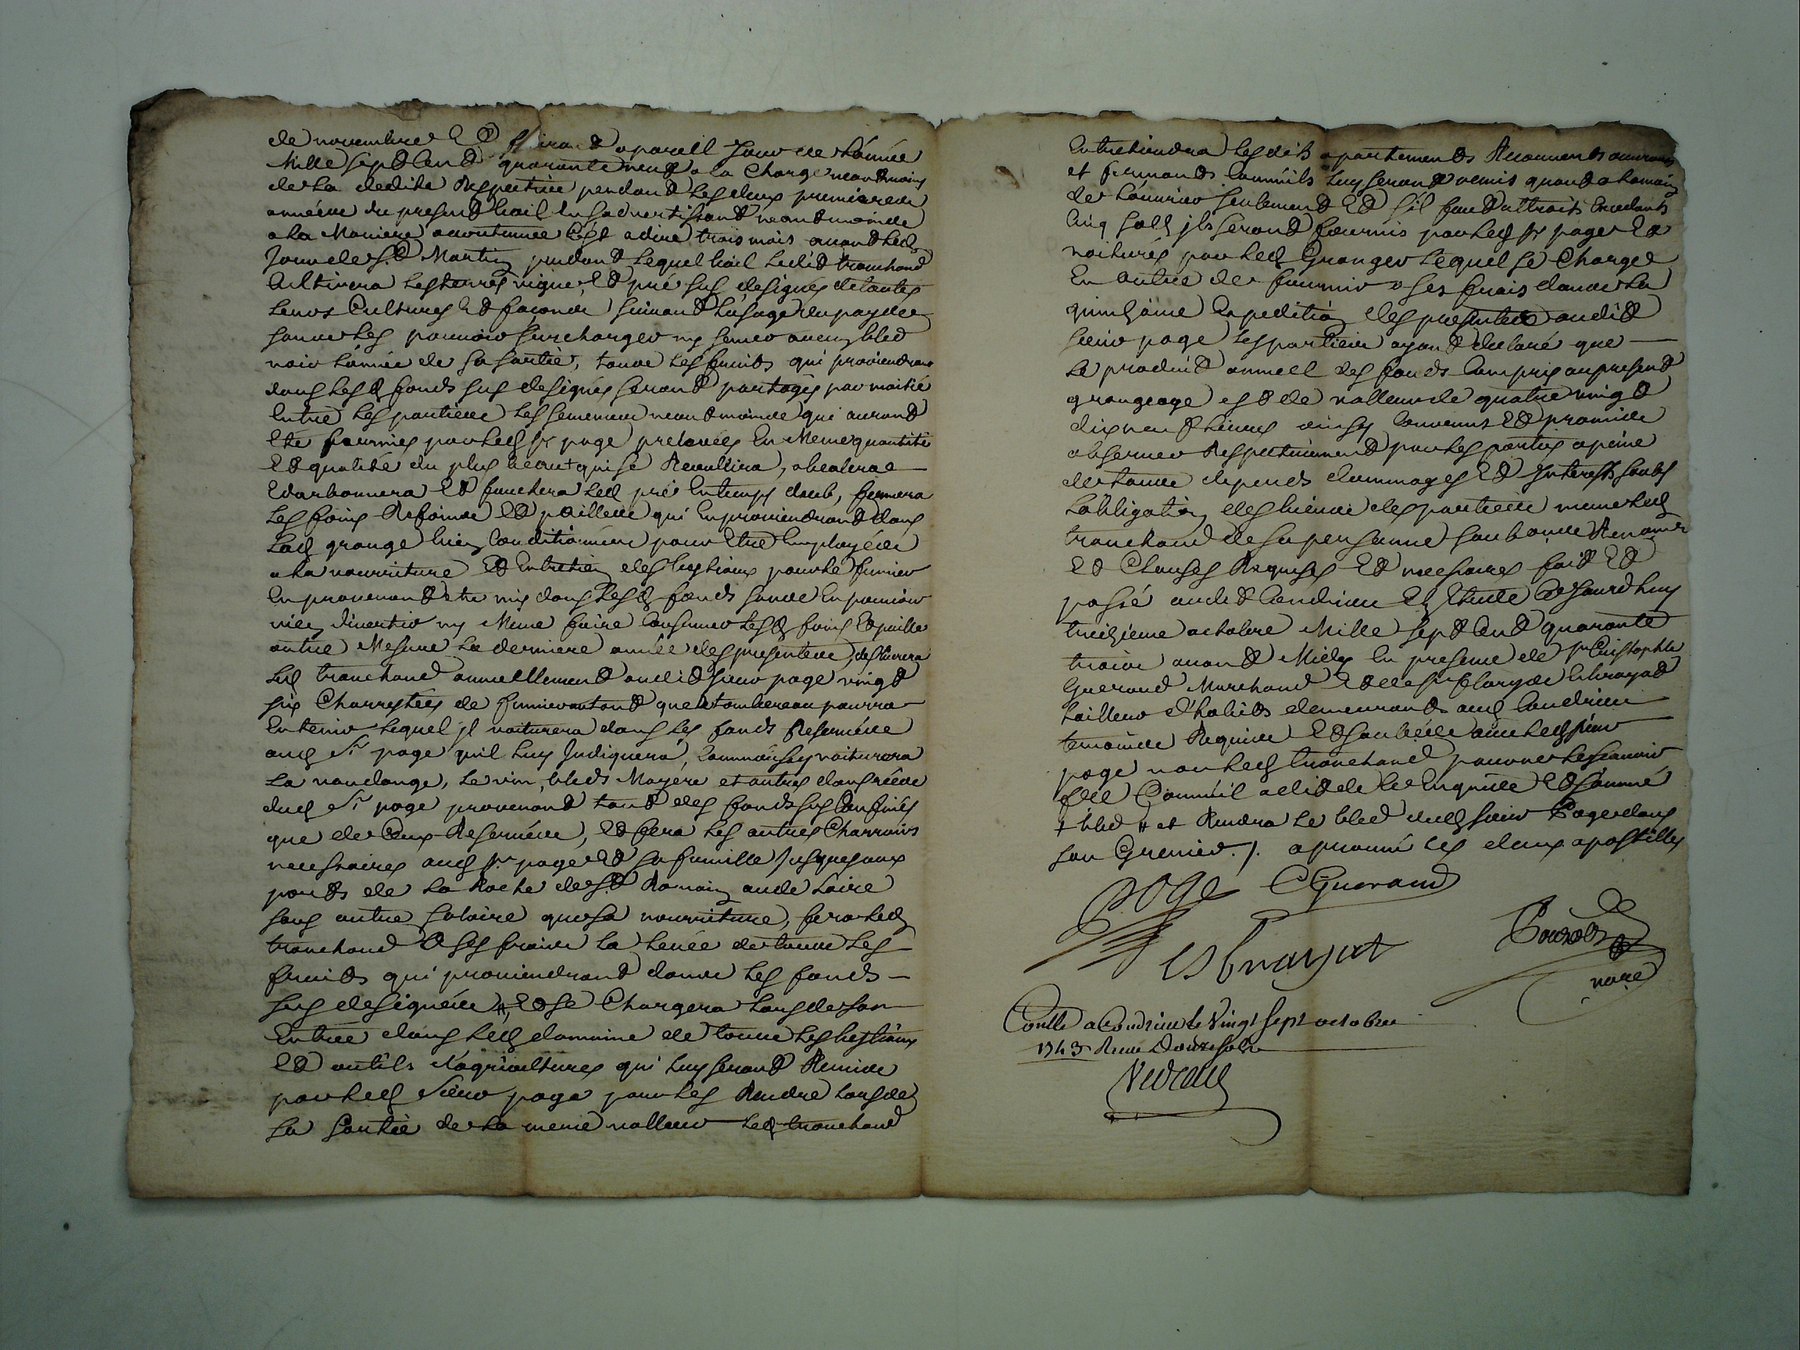 de novembre Et finira a pareil Jour de Lannée
Mille Sept Cent quarante neuf a la Charge neantmoins
de La dedite Respective pendant Les deux premieres
années du present bail En Sadvertissant neantmoins
a La Maniere acoutumee Cest a dire trois mois avant led
Jour de St Martin pendant Lequel bail Ledit tranchand
Cultivera Les terres vigne, Et pré sus designés de toutes
Leurs Cultures Et façons Suivant Lusage du pays
Sans Les pouvoir Surcharger ny Semer aucun bled
noir Lannée de Sa Sortie, tous Les fruits qui proviendront
dans Lesd fonds sus designés Seront partagés par moitié
Entre Les parties Les Semences neantmoins qui auront
Eté fournies par led Sr page prelevées En Meme quantité
Et qualité du plus beau qui se Recueillira,
Et fauchera Led pré En temps
Les foins Refoins Et pailles qui En proviendront dans
Lad grange bien Conditionnés pour Etre Employées
a La nourriture Et Entretien des bestiaux pour Le fumier
En provenant etre mis dans Lesd fonds Sans En pouvoir
rien divertir ny Meme faire Consumer Lesd foins Et paille
outre Mesure La derniere année des presentes, delivrera
Led tranchand annuellement audit Sieur page vingt
six Charretées de fumier autant que Le tombereau pourra
Contenir Lequel jl voiturera dans Les fonds Reservés
aud Sr page quil Luy Indiquera, Comme aussy voiturera
La vandange, Le vin, bleds Noyers et autres danrées
dud Sr page provenant tant des fonds sus Confinés
que de Ceux Reservés, Et fera Les autres Charrois
necessaires aud Sr page Et Sa famille Jusques aux
ports de La Roche de St Romain
sans autre Salaire que Sa nourriture, fera Led
tranchand a Ses frais La Levée de tous Les
fruits qui proviendront dans Les fonds
sus designés #, Et Se Chargera Lors de Son
Entrée dans Led domaine de tous Les bestiaux
Et outils dagriculture qui Luy Seront Remis
par Led Sieur page pour Les Rendre Lors de
Sa Sortie de La meme valleur Led tranchand
Entretiendra Lesdits apartements Recouverts ouvrants
et fermants Comme ils Luy Seront remis quand a Lamain
de Louvrier Seulement Et Sil faut attraits Excedants
Cinq Sols jls Seront fournis par Led Sr page Et
voiturés par Led Granger Lequel Se Charge
En outre de fournir a Ses frais dans La
quinzaine Expedition des presentes audit
Sieur page Les parties ayant declaré que
Le produit annuel des fonds Compris au present
grangeage est de valleur de quatre vingt
dix neuf Livres ainsy Convenu Et promis
observer Respectivement par Les parties a peine
de tous depends dommages Et Interests Soubs
Lobligation des biens des parties meme Led
tranchand de Sa personne Soubs Renon
Et Clauses Requises Et necessaires fait Et
passé audit Condrieu En Etude Cejourdhuy
treizieme octobre Mille Sept Cent quarante
trois avant Midy En presence de Sr Cristophle
Guerand Marchand Et de Sr
tailleur d'habits demeurants aud Condrieu
temoins Requis Et Soubsignés avec led Sieur
page non Led tranchand pour ne Scavoir
Ecrire Comme il a dit de Ce Enquis Et Sommé
# et Rendra Le bled dud Sieur page dans
Son Grenier./. aprouvé Les deux apostilles
page CGuerand

nore
Conlle a Condrieu Le Vingt Sept octobre
1743 Recu douze Sols